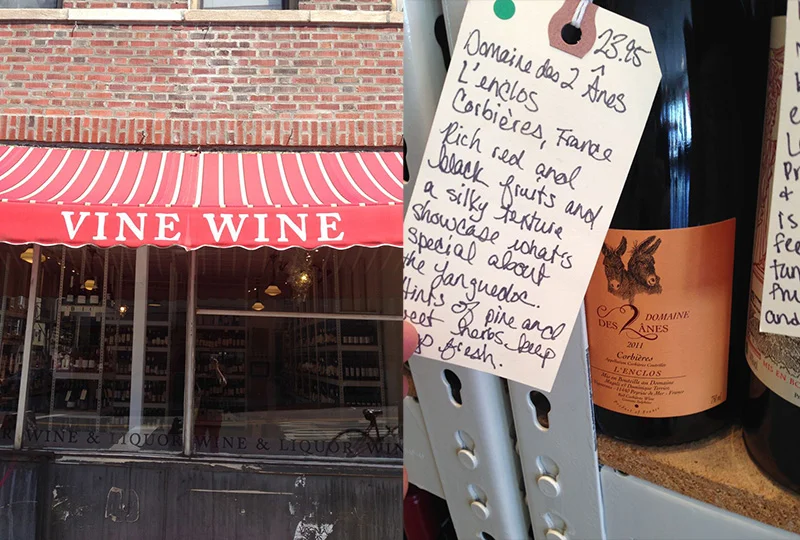 VINE WINE
WINE & LIQUOR WINE & LIQUOR WIN
23.95
Domaine des 2 Ânes
L'enclos
Corbières, France
Rich red and
black fruits and
a silky texture
showcase what's
special about
the Languedoc.
Hints of pine and
herbs keep
fresh.
DOMAINE
DES 2 ÂNES
2011
Corbières
Appellation Corbières Contrôlée
L'ENCLOS
Mis en Bouteille au Domaine
Product of France
is
and